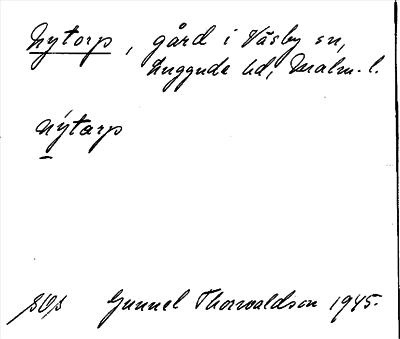 Nytorp, gård i Väsby sn,
Luggude hd, Malm. l.
nýtarp
Gunnel Thorwaldson 1945.